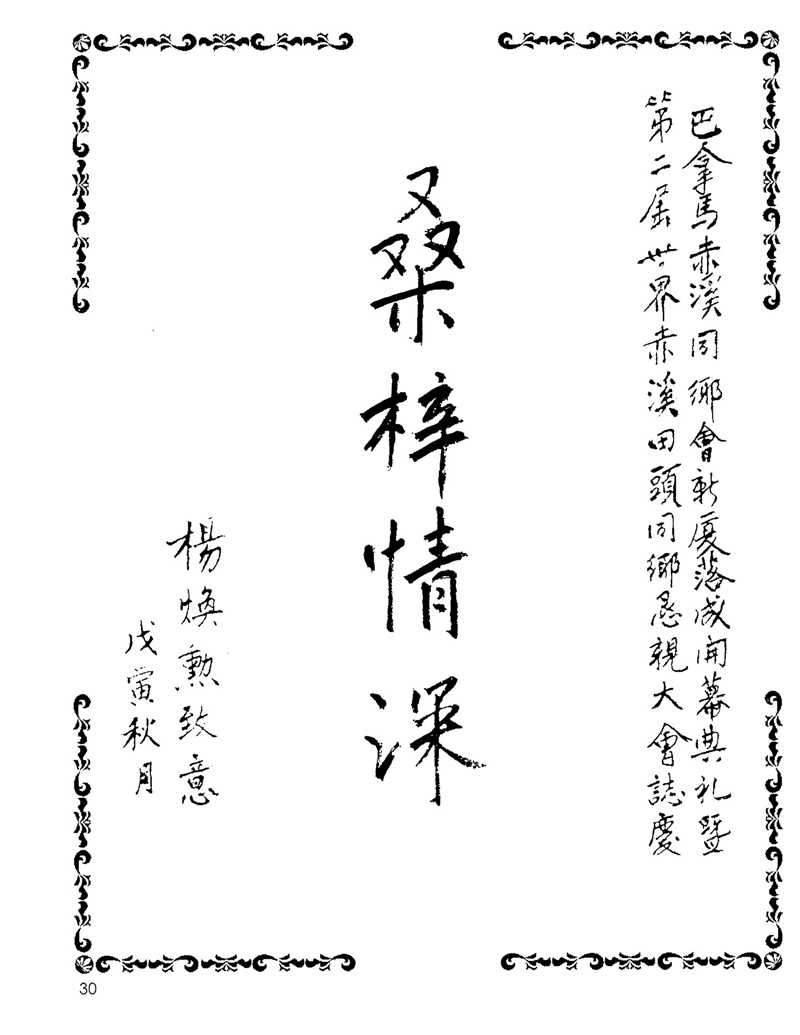 巴拿馬赤溪同鄉會新廈落成開幕典礼暨
第二届世界赤溪田頭同鄉恳親大會誌慶
桑梓情深
楊煥勲致意
戊寅秋月
30